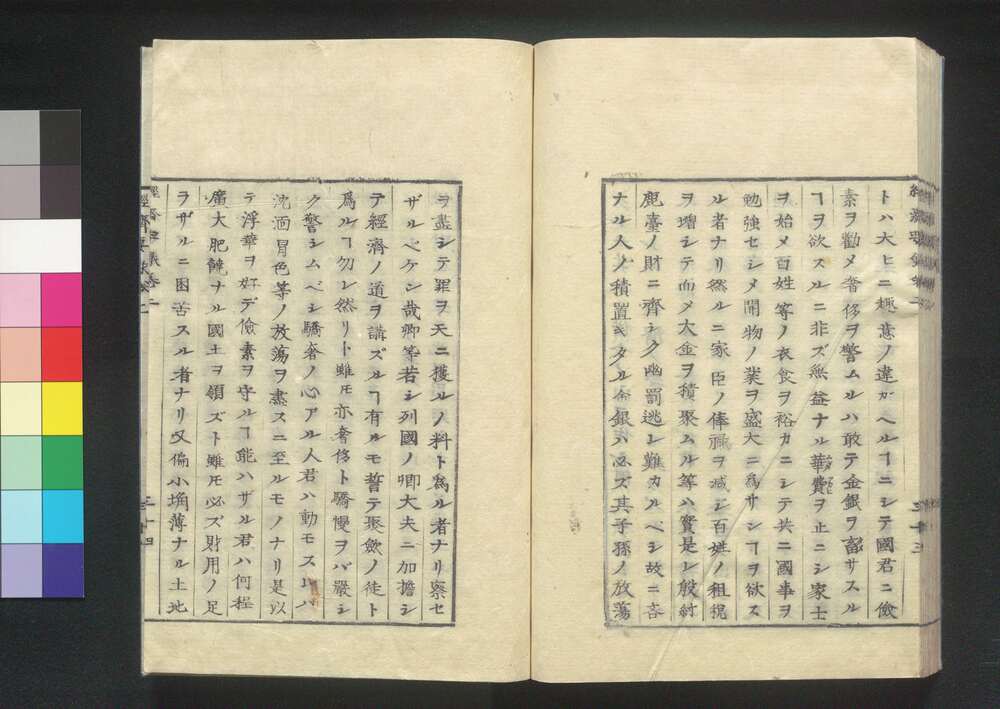 トハ大ヒニ趣意ノ違ガヘルヿニシテ國君ニ儉
素ヲ勸メ奢侈ヲ警ムルハ敢テ金銀ヲ畜サスル
ヿヲ欲スルニ非ズ無益ナル華費ヲ止ニシ家士
ヲ始メ百姓等ノ衣食ヲ裕カニシテ共ニ國事ヲ
勉強セシメ開物ノ業ヲ盛大ニ爲サシヿヲ欲ス
ル者ナリ然ルニ家臣ノ俸祿ヲ减シ百姓ノ租税
ヲ增シテ而メ大金ヲ積聚ムル等ハ實是レ殷紂
鹿臺ノ財ニ齊シク幽罰逃レ難カルベシ故ニ吝
ナル人ノ積置キタル金銀ハ必ズ其子孫ノ放蕩
ヲ盡シテ罪ヲ天ニ獲ルノ料ト爲ル者ナリ察セ
ザルベケン哉卿等若シ列國ノ卿大夫ニ加擔シ
テ經濟ノ道ヲ講ズルヿ有ルモ誓テ聚斂ノ徒ト
爲ルヿ勿レ然リト雖モ亦奢侈ト驕慢ヲバ嚴シ
ク警シムベシ驕奢ノ心アル人君ハ動モスレバ
沈湎冒色等ノ放蕩ヲ盡スニ至ルモノナリ是以
テ浮華ヲ好デ儉素ヲ守ルヿ能ハザル君ハ何程
廣大肥饒ナル國土ヲ領ズト雖モ必ズ財用ノ足
ラザルニ困苦スル者ナリ又偏小塉薄ナル土地
三十四